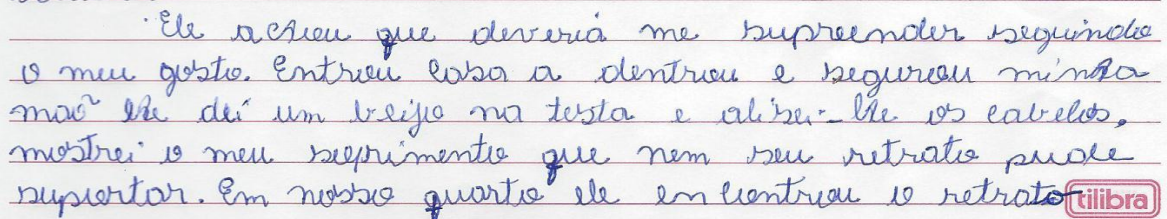 Ele achou que deveria me supreender seguindo
o meu gosto. Entrou casa a dentrou e segurou minha
mão lhe dei um beijo na testa e alisei-lhe os cabelos,
mostrei o meu sofrimento que nem seu retrato pude
suportar. Em nosso quarto ele encontrou o retrato
tilibra